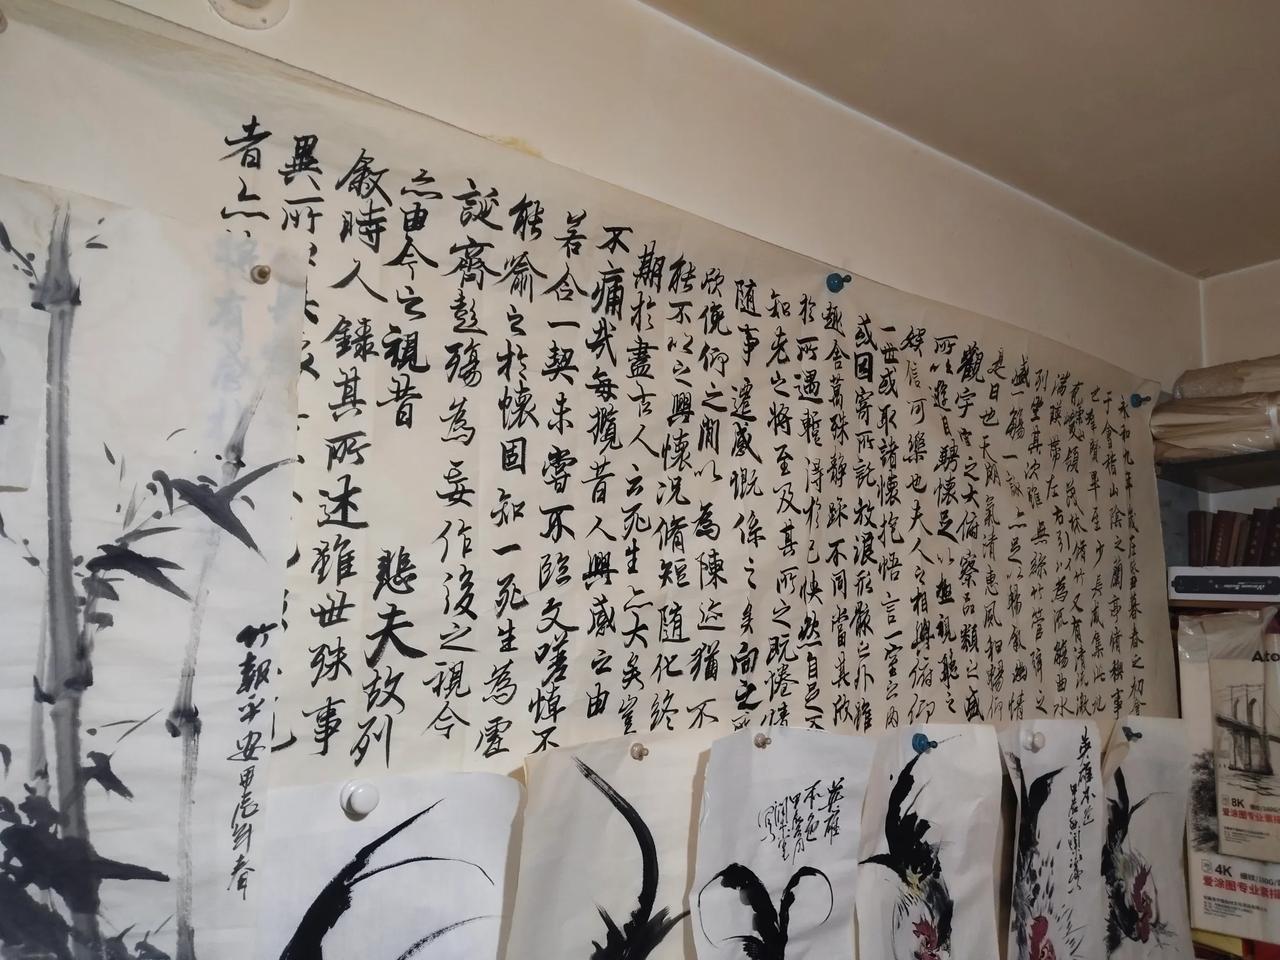 永和九年歲在癸丑暮春之初會
于會稽山陰之蘭亭脩稧事
也羣賢畢至少長咸集此地
有崇山峻領茂林脩竹又有清流激
湍暎帶左右引以為流觴曲水
列坐其次雖無絲竹管弦之
盛一觴一詠亦足以暢敘幽情
是日也天朗氣清惠風和暢仰
觀宇宙之大俯察品類之盛
所以遊目騁懷足以極視聽之
娛信可樂也夫人之相與俯仰
一世或取諸懷抱悟言一室之內
或因寄所託放浪形骸之外雖
趣舍萬殊靜躁不同當其欣
於所遇暫得於己快然自足不
知老之將至及其所之既惓情
隨事遷感慨係之矣向之所
欣俛仰之閒以為陳迹猶不
能不以之興懷况脩短隨化終
期於盡古人云死生亦大矣豈
不痛哉每攬昔人興感之由
若合一契未嘗不臨文嗟悼不
能喻之於懷固知一死生為虛
誕齊彭殤為妄作後之視今
亦由今之視昔
悲夫故列
敘時人錄其所述雖世殊事
異所
者亦
竹報平安甲辰年春
英雄
本色
英雄本色
8K
爱涂图专业素描
4K
爱涂图专业素描